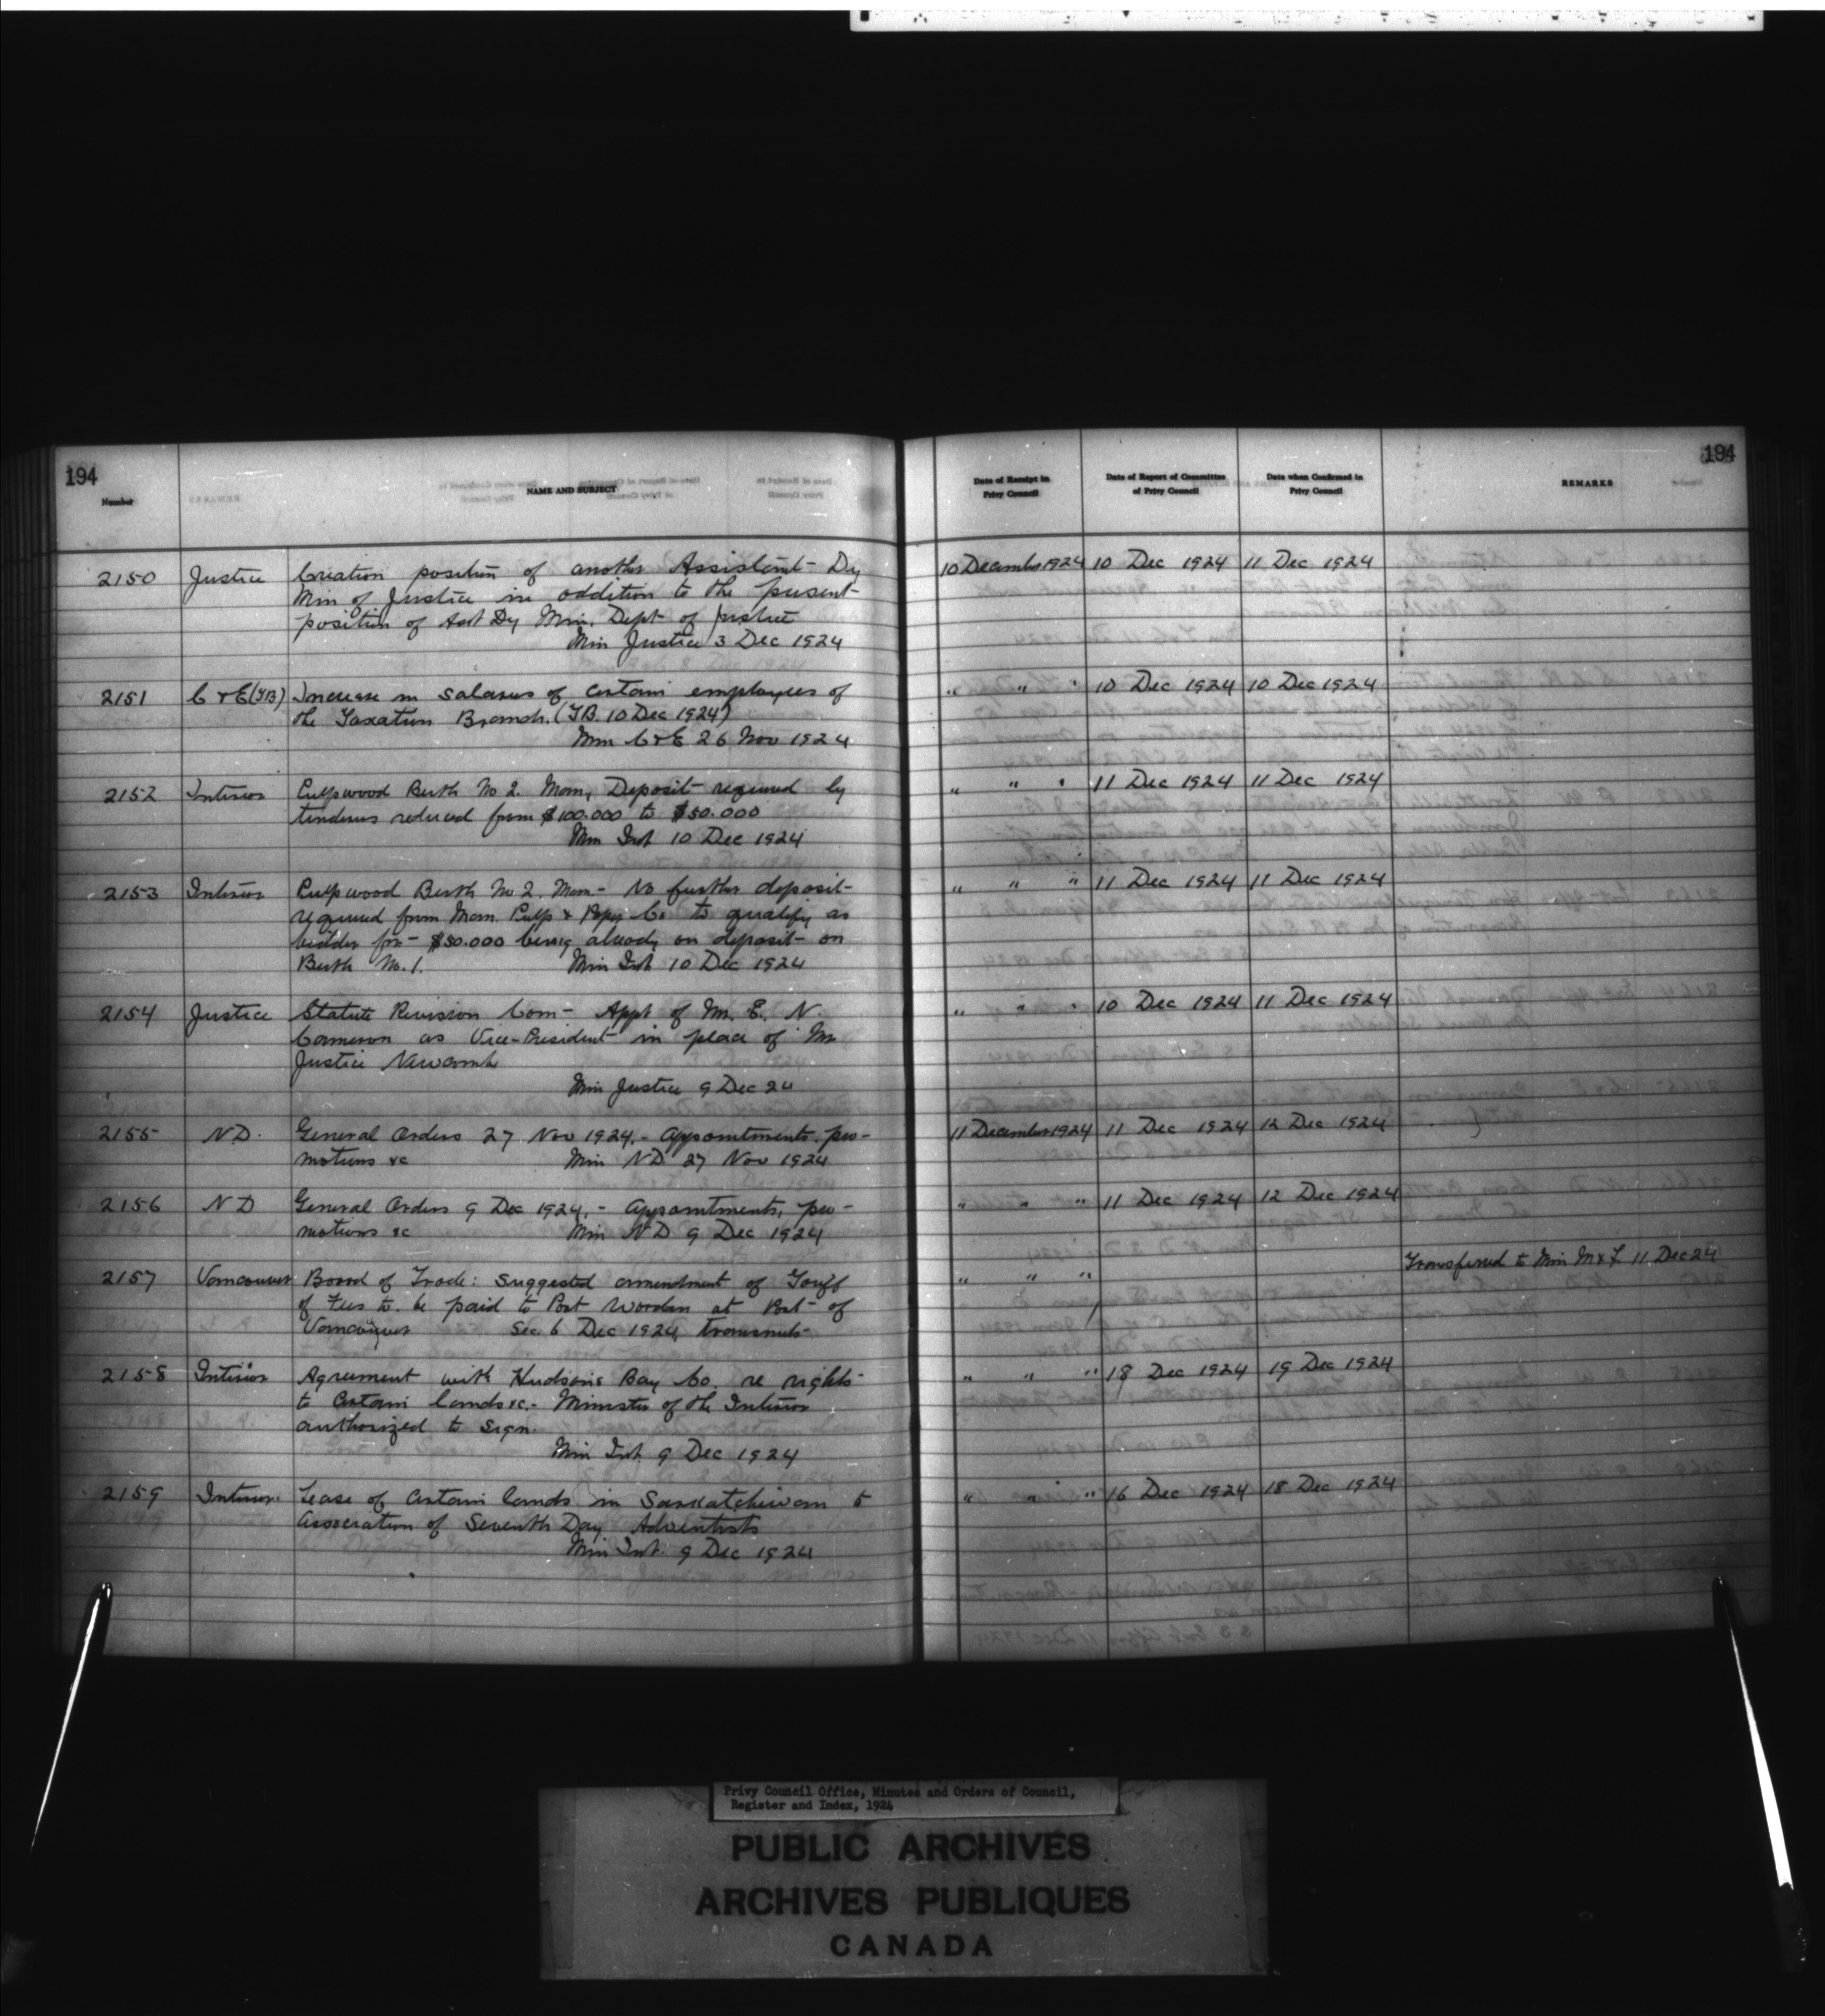 194
194
Number
NAME AND SUBJECT
Date of Receipt in Privy Council
Date of Report of Committee of Privy Council
Date when Confirmed in Privy Council
REMARKS
2150 Justice Creation position of another Assistant Dy 10 December 1924 10 Dec 1924 11 Dec 1924
Min of Justice in addition to the present
position of Asst Dy Min. Dept of Justice
Min Justice 3 Dec 1924
2151 C & E (TB) Increase in salaries of certain employees of " " " 10 Dec 1924 10 Dec 1924
the Taxation Branch. (TB. 10 Dec 1924)
Min C & E 26 Nov 1924
2152 Interior Pulpwood Berth No 2. Man, Deposit required by " " " 11 Dec 1924 11 Dec 1924
tenderers reduced from $100.000 to $50.000
Min Int 10 Dec 1924
2153 Interior Pulpwood Berth No 2. Man - No further deposit " " " 11 Dec 1924 11 Dec 1924
required from Man. Pulp & Paper Co to qualify as
bidder for - $50.000 being already on deposit on
Berth No. 1. Min Int 10 Dec 1924
2154 Justice Statute Revision Com - Appt of Mr. E. N. " " " 10 Dec 1924 11 Dec 1924
Cameron as Vice-President in place of Mr
Justice Newcombe
Min Justice 9 Dec 24
2155 N.D. General Orders 27 Nov 1924. - Appointments, pro- 11 December 1924 11 Dec 1924 12 Dec 1924
motions &c Min ND 27 Nov 1924
2156 N D General Orders 9 Dec 1924. - Appointments, pro- " " " 11 Dec 1924 12 Dec 1924
motions &c Min N D 9 Dec 1924
Transferred to Min M & F 11 Dec 24
2157 Vancouver Board of Trade: suggested amendment of Tariff " " "
of Fees to be paid to Port Warden at Port of
Vancouver Sec. 6 Dec 1924 transmits
2158 Interior Agreement with Hudsons Bay Co. re rights " " " 18 Dec 1924 19 Dec 1924
to certain lands &c. - Minister of the Interior
authorized to sign.
Min Int. 9 Dec 1924
2159 Interior Lease of certain lands in Saskatchewan to " " " 16 Dec 1924 18 Dec 1924
Association of Seventh Day Adventists
Min Int. 9 Dec 1924
Privy Council Office, Minutes and Orders of Council,
Register and Index, 1924
PUBLIC ARCHIVES
ARCHIVES PUBLIQUES
CANADA